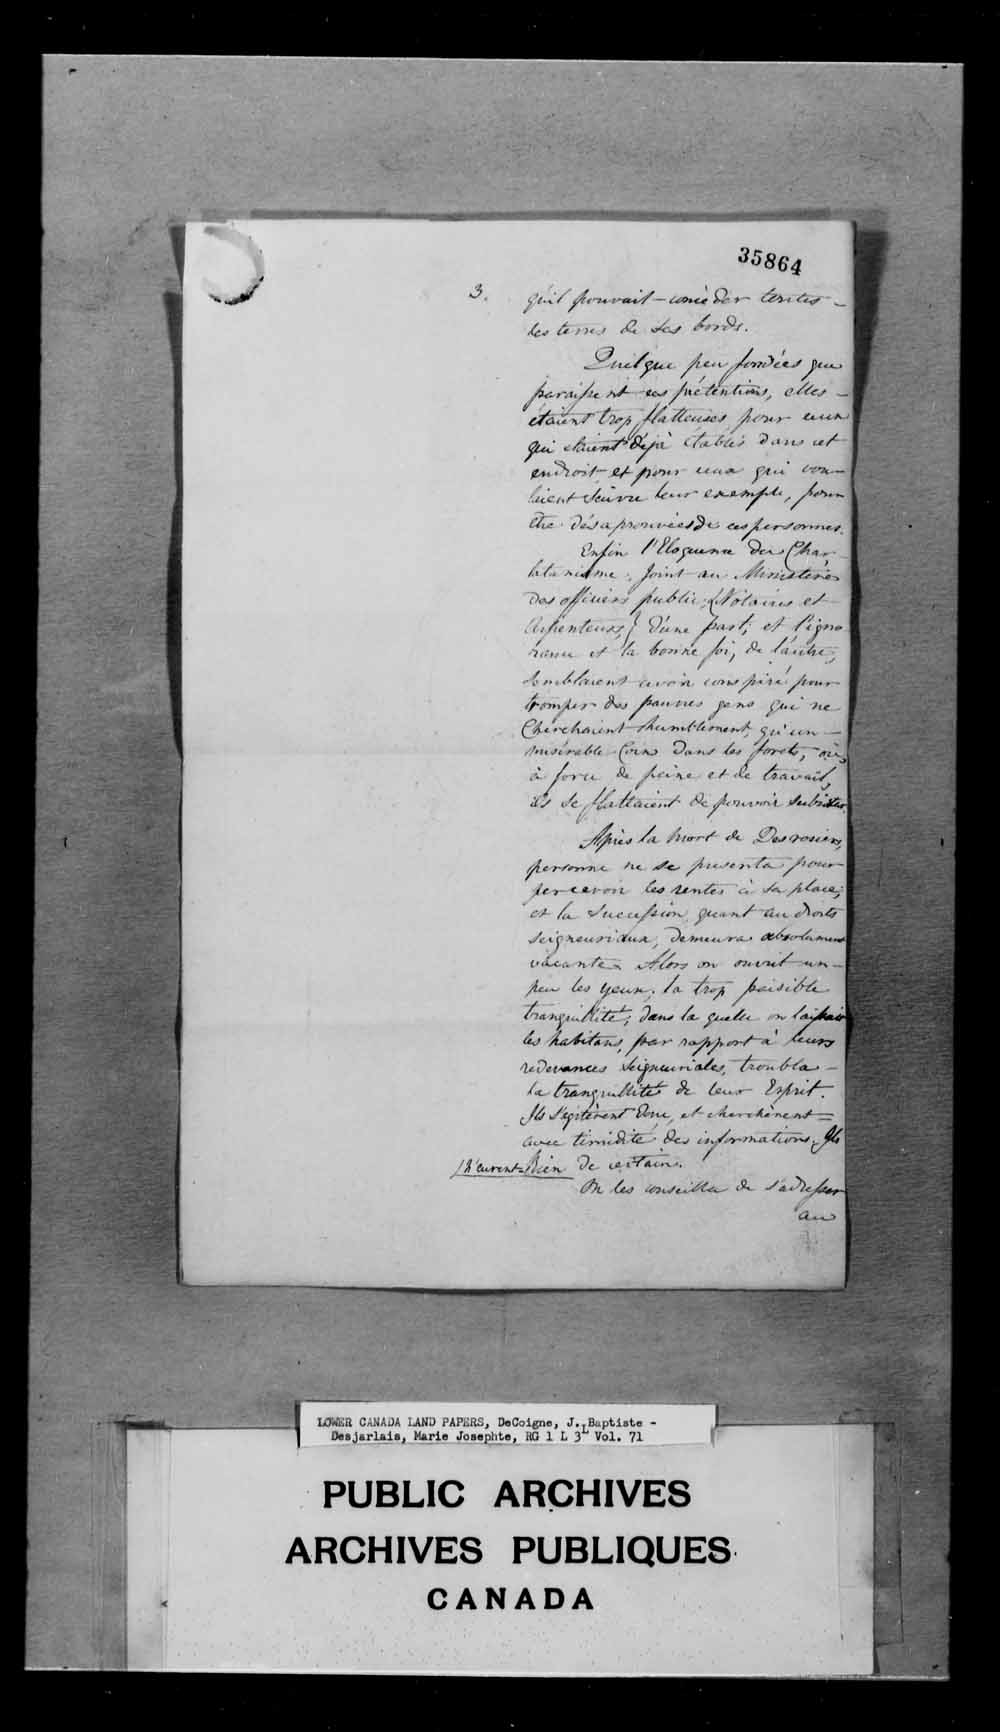 35864
3.
qu'il pouvait concéder toutes
les terres de ses bords.
Quelque peu fondées que
paraissent ces prétentions, elles
étaient trop flatteuses pour ceux
qui étaient déjà établis dans cet
endroit et pour ceux qui vou-
laient suivre leur exemple, pour
être désaprouvées de ces personnes.
Enfin l'Eloquence du Char-
latanisme, joint au Ministère
des officiers public, (Notaires et
Arpenteurs,) d'une part; et l'igno
rance et la bonne foi, de l'autre,
semblaient avoir conspiré pour
tromper des pauvres gens qui ne
Cherchaient humblement, qu'un
misérable Coin dans les forets, où
à force de peine et de travail,
ils se flattaient de pouvoir subsister.
Après la mort de Desrosiers,
personne ne se presenta pour
percevoir les rentes à sa place;
et la succession, quant au droits
seigneuriaux, demeura absolument
vacante. Alors on ouvrit un
peu les yeux; la trop paisible
tranquillité, dans la quelle on laissait
les habitans, par rapport à leurs
redevances seigneuriales, troubla
la tranquillité de leur Esprit.
Ils s'agitèrent donc, et cherchèrent
avec timidité des informations. Ils
/n'eurent Rien de certain.
On les conseilla de s'adresser
au
LOWER CANADA LAND PAPERS, DeCoigne, J. Baptiste -
Desjarlais, Marie Josephte, RG 1 L 3L Vol. 71
PUBLIC ARCHIVES
ARCHIVES PUBLIQUES
CANADA